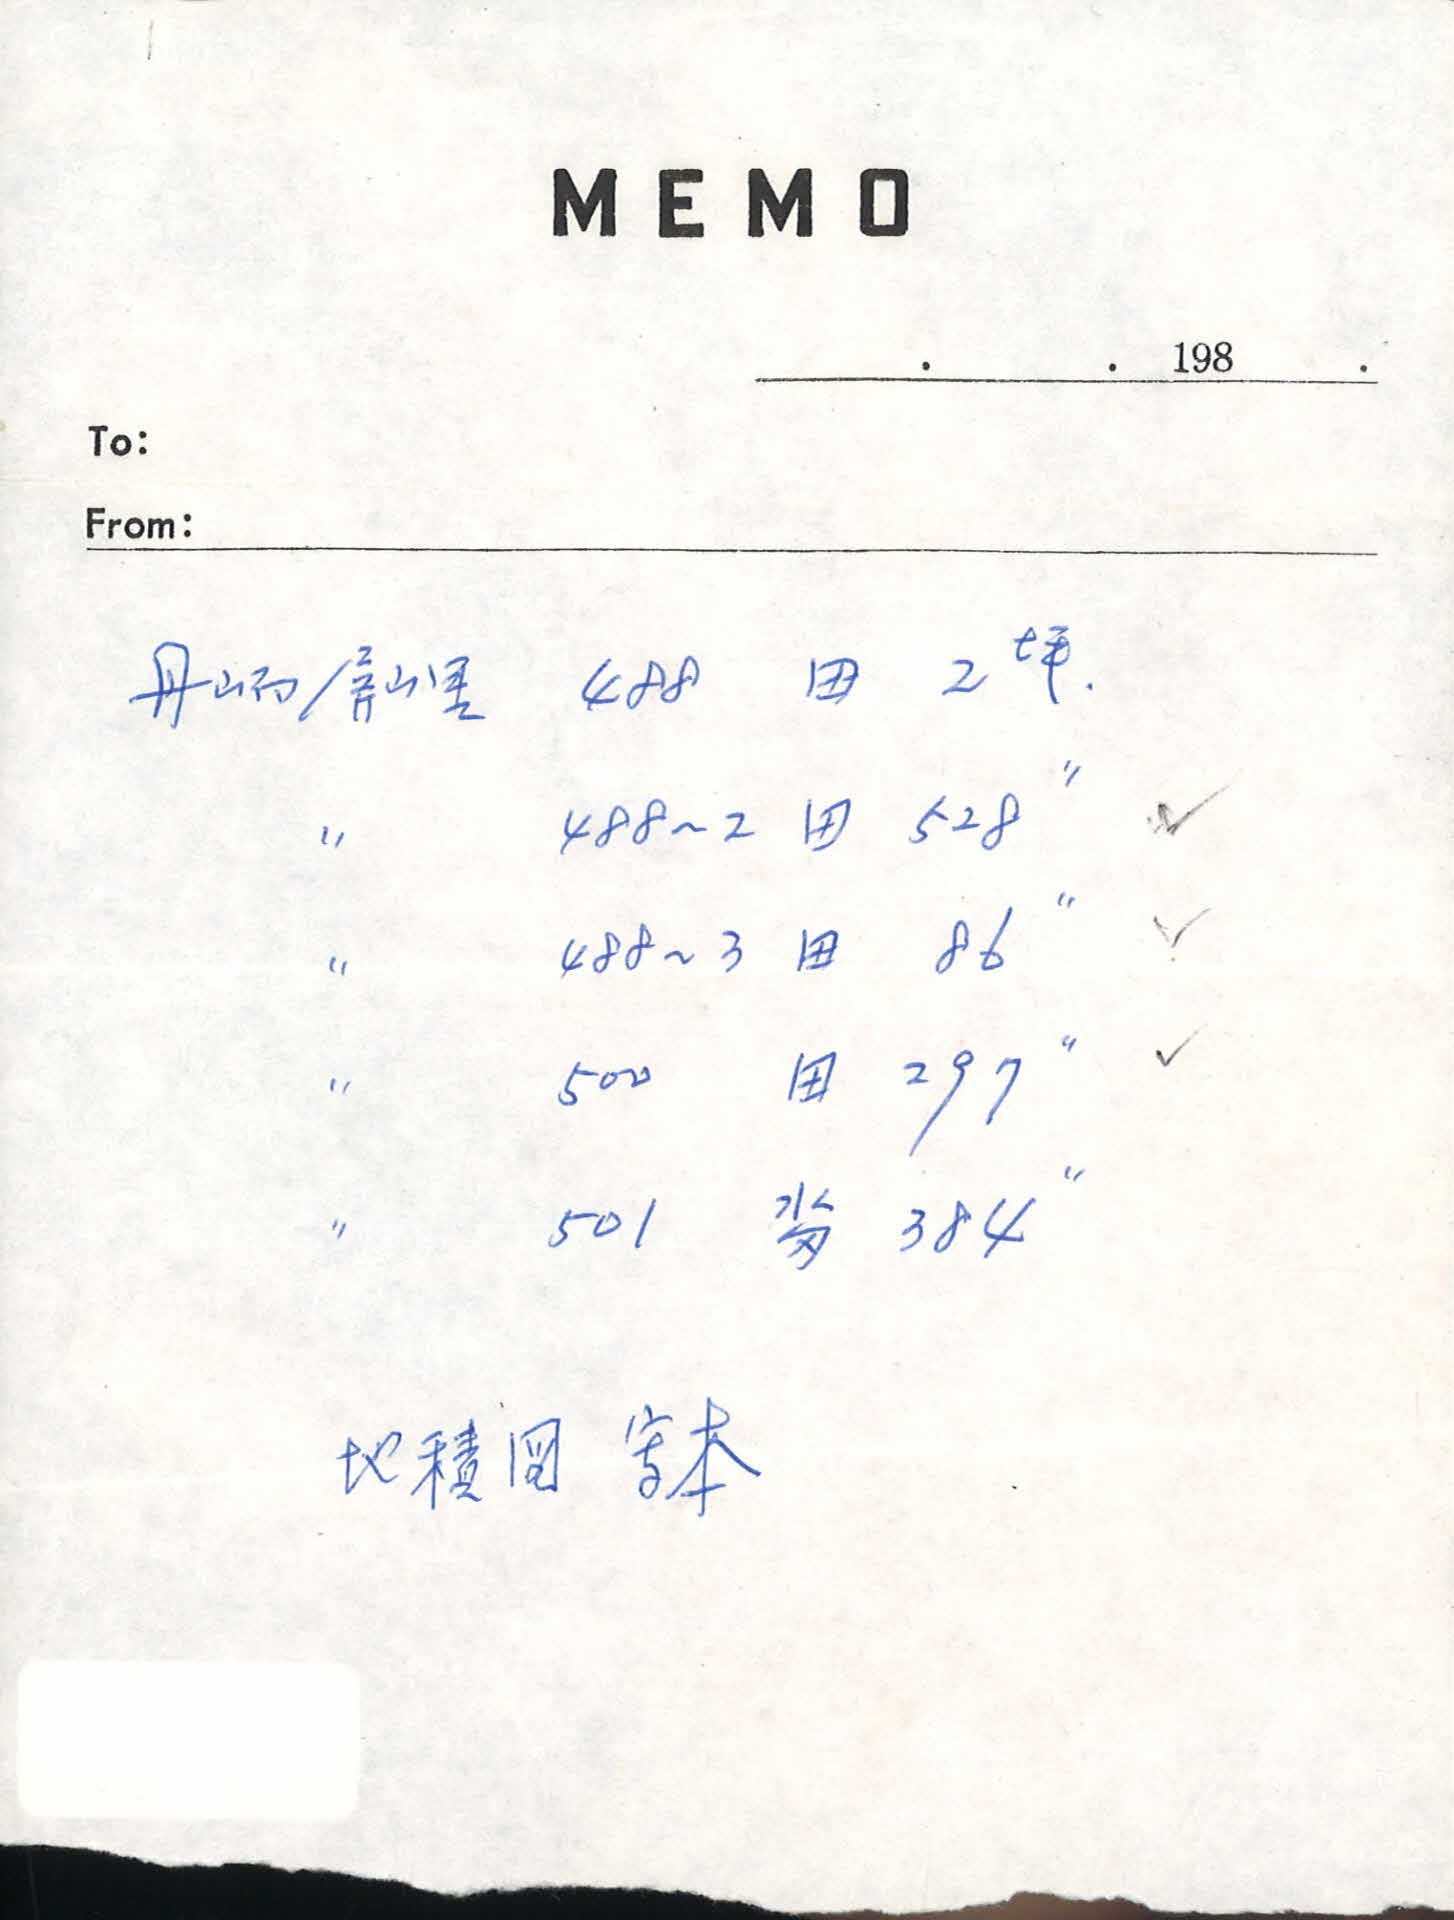 MEMO
. . 198 .
To:
From:
丹山面 屛山里 488 田 2坪.
" 488~2 田 528 "
" 488~3 田 86 "
" 500 田 297 "
" 501 畓 384 "
地積図 写本